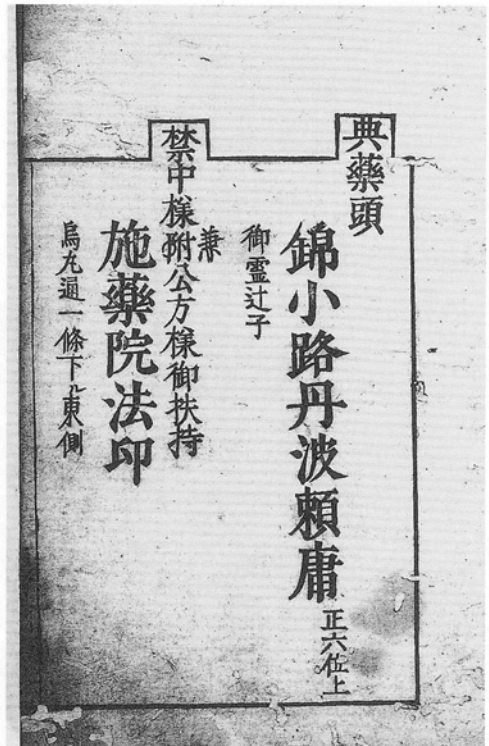 典藥頭
錦小路丹波頼庸 正六位上
御霊辻子
禁中様附兼公方様御扶持
施藥院法印
烏丸通一條下ル東側